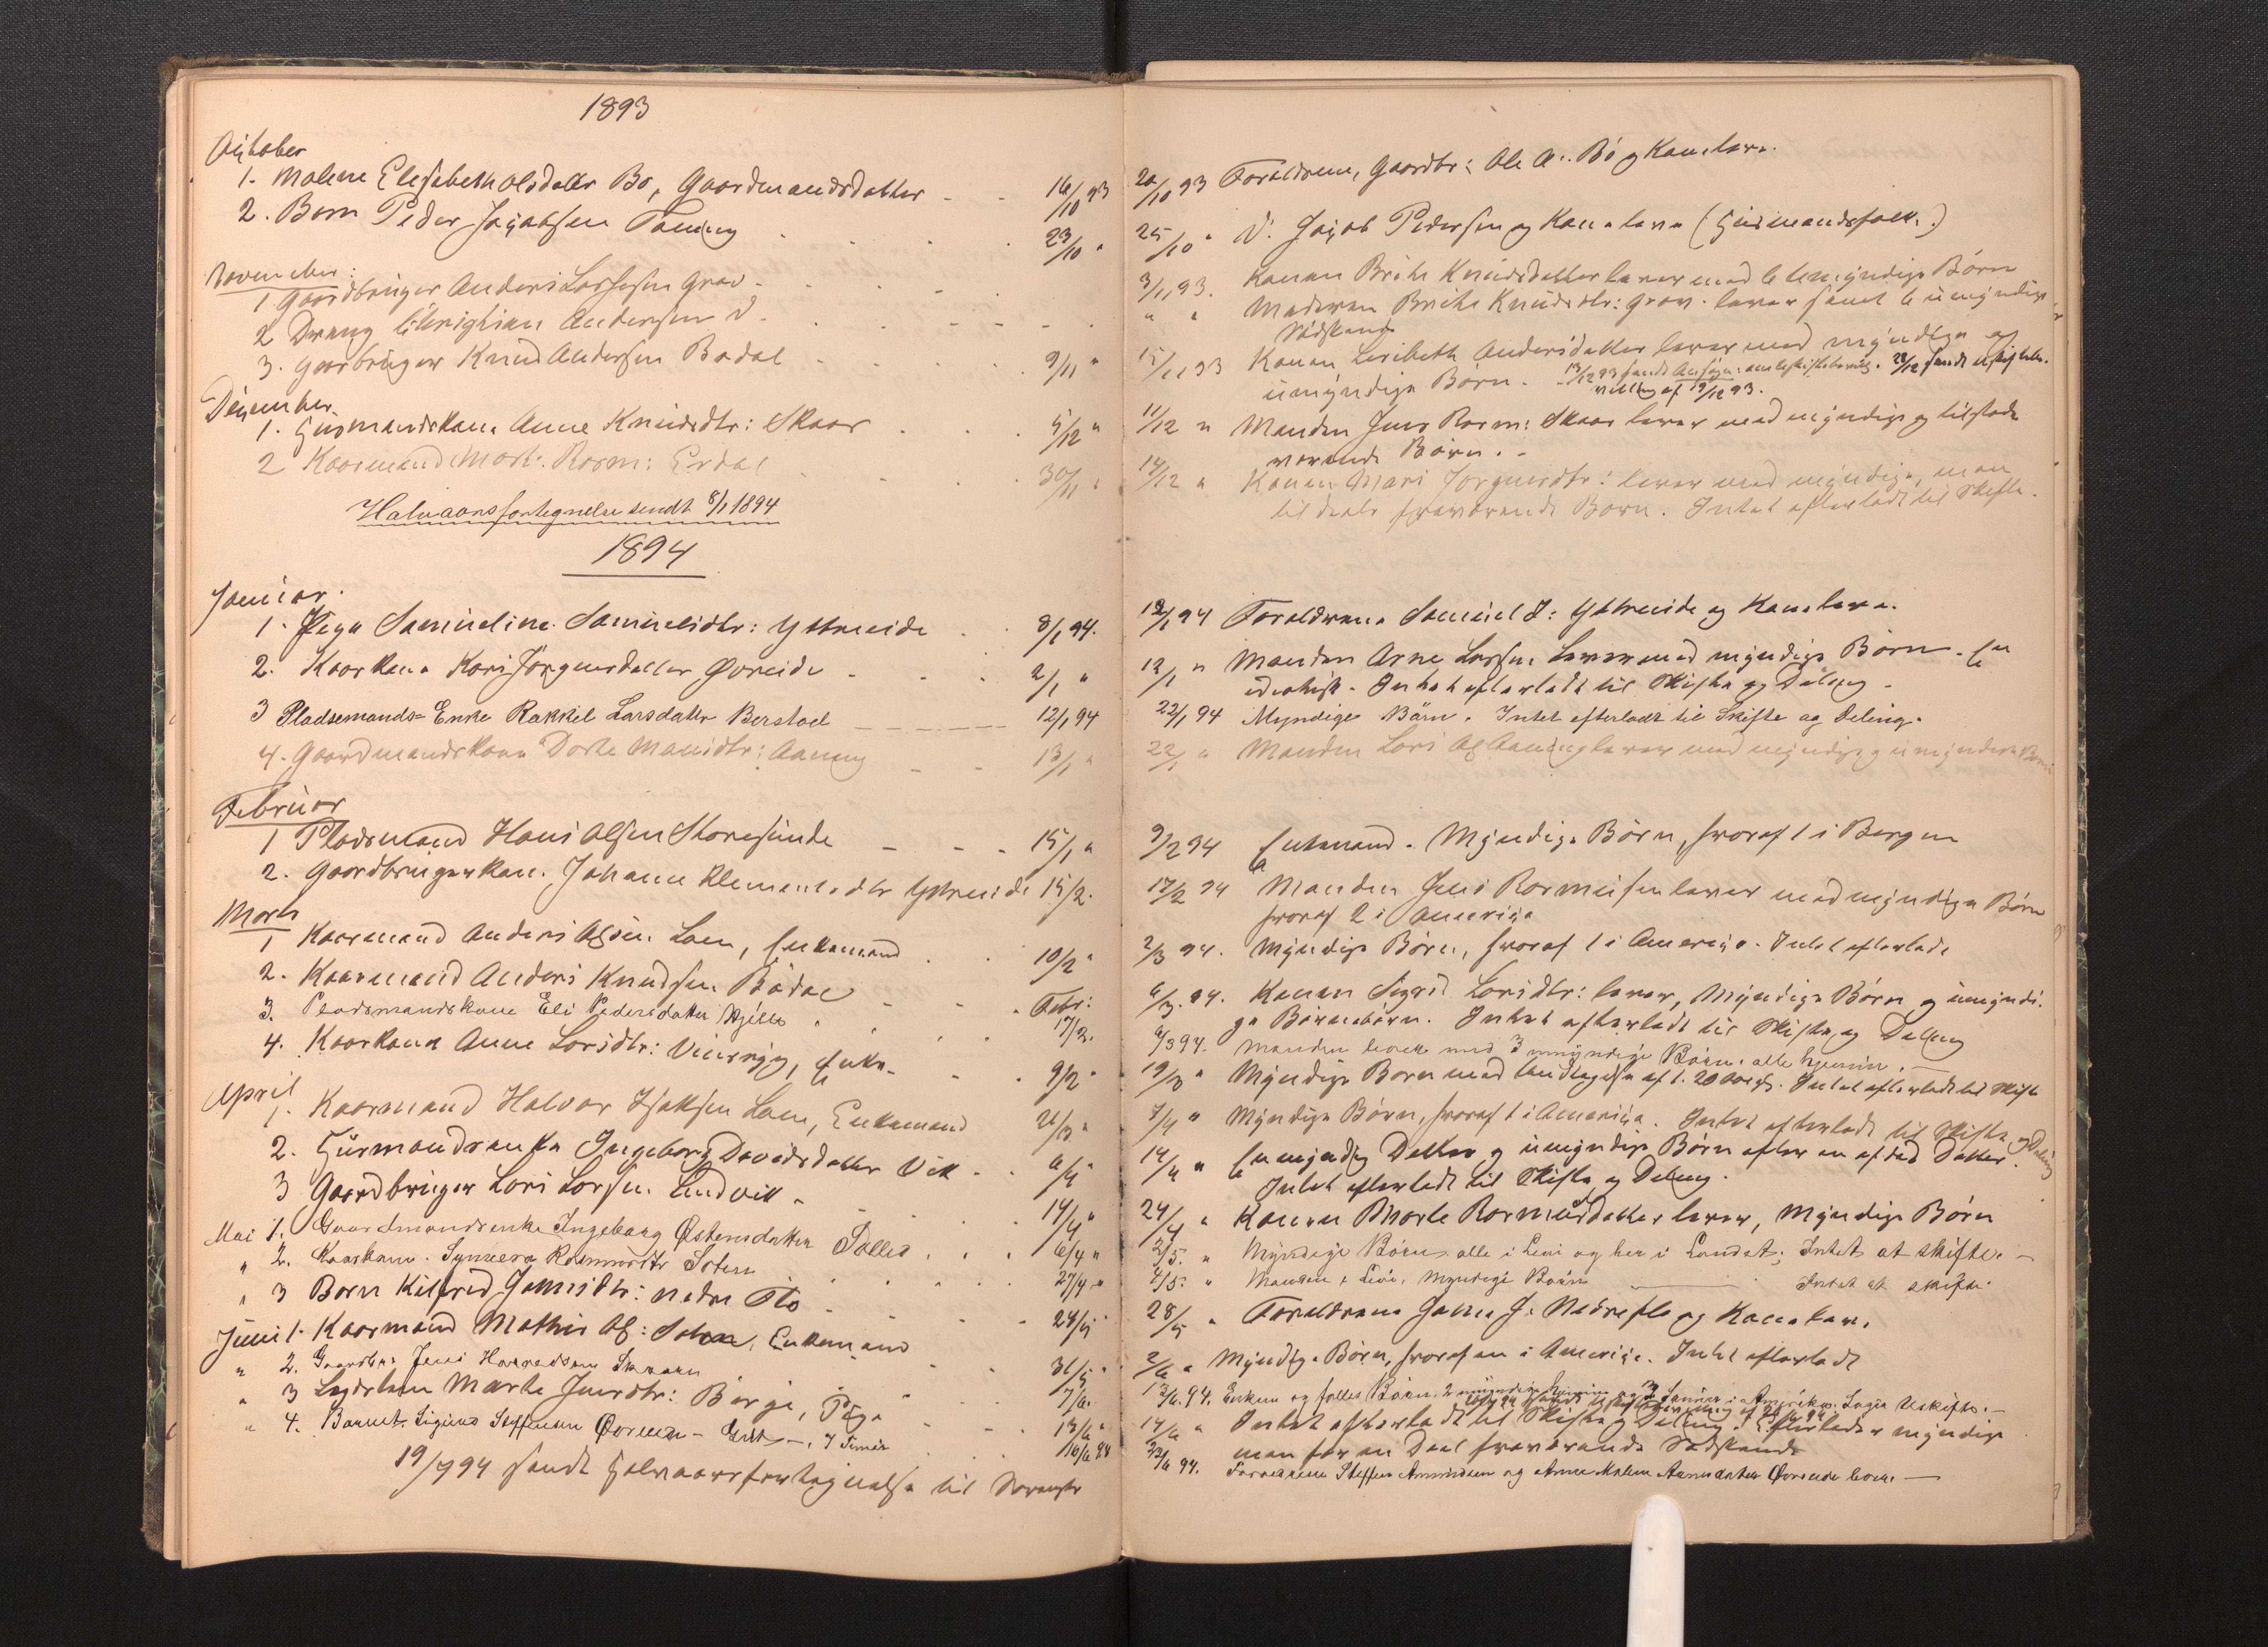 1893
October
1. Malene Elisabeth Olsdatter Bø, Gaardmandsdatter - - 16/10 93
2. Barn Peder Jacobsen Taning . . . . 23/10 "
November:
1 Gaardbruger Anders Lassesen Grov - . . . .
2 Dreng Christian Andersen D. . . - - - .
3. Gaarbruger Knud Andersen Bødal . . . 9/11 "
December
1. Husmandskone Anne Knudsdtr: Skaar . . . 5/12 "
2 Kaarmand Mort. Rasm: Erdal . . . 30/11 "
Halvaarsfortegnelse sendt 8/1 1894
1894
Januar.
1. Pige Samueline Samuelsdtr: Ytreeide . . 8/1 94.
2. Kaarkone Kari Jörgensdatter Øvreide - . . 2/1 "
3 Pladsemands-Enke Rakkel Larsdatter Berstad - - - - 12/1 94
4. Gaardmandskone Dorte Monsdtr: Aaning - - 13/1 "
Februar
1 Pladsmand Hans Olsen Storesunde - - - 15/1 "
2. Gaardbrugerkone Johanne Klementsdtr Ytreeide 15/2.
Marts
1 Kaarmand Anders Olsen Loen, Enkemand . . 10/2 "
2. Kaarmand Anders Knudsen Bødal - - . Febr:
3. Pladsmandskone Eli Pedersdatter Hjelle . . . 17/2.
4. Kaarkone Anne Larsdtr: Vinsrygg, Enke - . . 9/2 "
April
1. Kaarmand Halvor Isaksen Loen, Enkemand 21/3 "
2. Husmandsenke Ingeborg Davidsdatter Vik - . 6/4 "
3 Gaardbruger Lars Larsen Lindvik - . . 14/4 "
Mai 1. Gaardmandsenke Ingeborg Østensdatter Solles . . . 6/4 "
" 2. Kaarkone. Synneva Rasmusdtr Soten . . . 27/4 "
" 3 Barn Kilfrid Jonnsdtr: nedre Flo . . . 24/5 "
Juni 1. Kaarmand Mathis Ols: , Enkemand . . 31/5 "
" 2. Gaardbr. Jens Skaaren . . . 7/6.
" 3 Legdslem Marte Jensdtr: Berge, Pige - - . 13/6 "
" 4. Barnet Sigurd Steffensen Øvreeide - - , 7 Timer . . 16/6 94
19/7 94 sendt Halvaarsfortegnelse til
20/10 93 Forældrene, Gaardbr: Ole A. Bø og Kone lever.
25/10 " D. Jacob Pedersen og Kone lever (Husmandsfolk.)
3/11 93. Konen Brithe Knudsdatter lever med 6 umyndige Børn
" " Moderen Brithe Knudsdtr: Grov lever samt 6 umyndige
Södskende
15/11 93 Konen Lisbeth Andersdatter lever med myndige og
umyndige Børn. - 13/12 93 sendt . 29/12 sendt
af 19/12 93.
11/12 " Manden Jens Rasm: Skaar lever med myndige og tilstede
værende Børn. -
14/12 " Konen Mari Jörgensdtr: lever med myndige, men
til deels fraværende Børn. Intet efterladt til Skifte.
12/1 94 Forældrene Samuel J: Ytreeide og Kone lever.
12/1 " Manden Arne Larsen lever med myndige Børn. En
idiotisk. Intet efterladt til Skifte og Deling.
22/1 94 Myndige Börn. Intet efterladt til Skifte og Deling.
22/1 " Manden Lars Ols Aaning lever med myndige og umyndige Børn
9/2 94 Enkemand. Myndige Børn, hvoraf 1 i Bergen
17/2 94 Manden Jens Rasmussen lever med myndige Børn
hvoraf 2 i America
2/3 94. Myndige Børn, hvoraf 1 i America. Intet efterladt
6/3. 94. Konen Sigrid Larsdtr: lever, Myndige Børn og umyndi-
ge Børnebørn. Intet efterladt til Skifte og Deling
6/3 94. Manden lever med 3 umyndige Børn, alle hjemme. -
19/3 " Myndige Børn med Undtagelse af 1. 20 Aar gl. Intet efterladt til Skifte
7/4 " Myndige Børn, hvoraf 1 i America. Intet efterladt til Skifte og Deling
14/4 " En myndig Datter og umyndige Børn efter en afdød Datter.
Intet efterladt til Skifte og Deling.
24/4 " Konen Marte Rasmusdatter lever, Myndige Børn
2/5. " Myndige Børn alle i Live og her i Landet. Intet at skifte. -
4/5. " Manden i Live. Myndige Børn ——— Intet at skifte
28/5 " Forældrene Jonn J: Nedreflo og Kone lever.
2/6 " Myndige Børn, hvoraf en i America. Intet efterladt
13/6. 94. Enken og fælles Børn, 2 umyndige hjemme og 3 i Amerika. -
14/6 " Intet efterladt til Skifte og Deling. Efterlader myndige
men for en Deel fraværende Södskende
23/6 94. Forældrene Steffen Amundsen og Anne Malene Aamsdatter Øvreeide lever. -